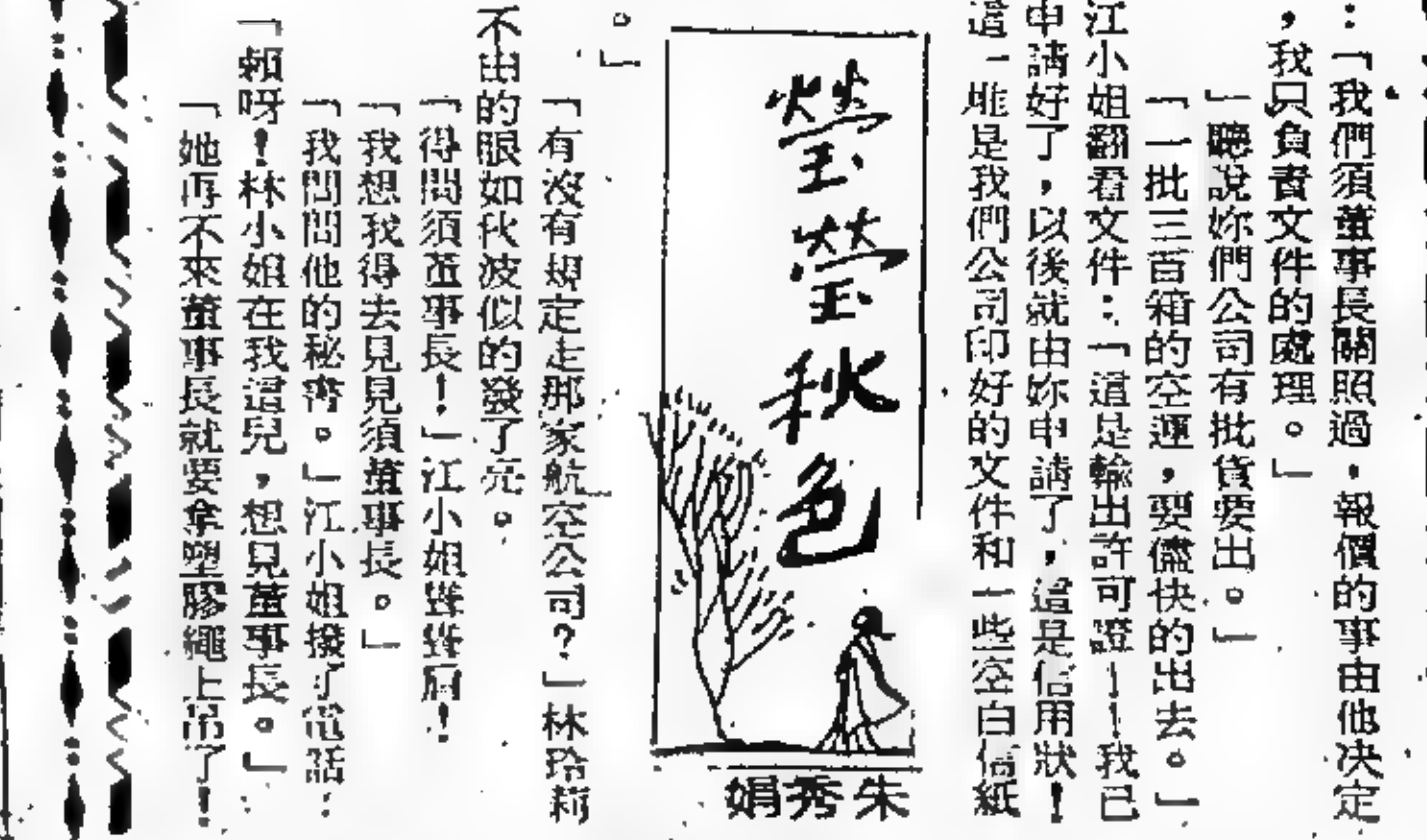 ：「我們須董事長關照過，報價的事由他决定
，我只負責文件的處理。」
「聽說妳們公司有批貨要出。」
「一批三百箱的空運，要儘快的出去。」
江小姐翻看文件：「這是輸出許可證——我已
申請好了，以後就由妳申請了，這是信用狀！
這一堆是我們公司印好的文件和一些空白信紙
。」
瑩瑩秋色
朱秀娟
「有沒有規定走那家航空公司？」林玲莉
不由的眼如秋波似的發了亮。
「得問須董事長！」江小姐聳聳肩！
「我想我得去見見須董事長。」
「我問問他的秘書。」江小姐撥了電話：
「賴呀！林小姐在我這兒，想見董事長。」
「她再不來董事長就要拿塑膠繩上吊了！